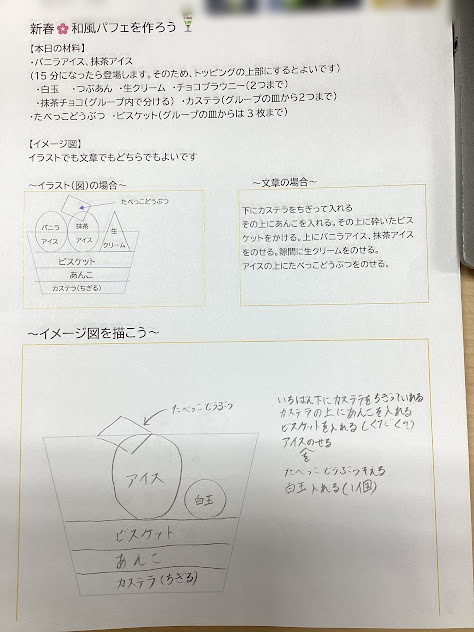 新春🌸和風パフェを作ろう
【本日の材料】
・バニラアイス、抹茶アイス
(15分になったら登場します。そのため、トッピングの上部にするとよいです)
・白玉 ・つぶあん ・生クリーム ・チョコブラウニー(2つまで)
・抹茶チョコ(グループ内で分ける) ・カステラ(グループの皿から2つまで)
・たべっこどうぶつ ・ビスケット(グループの皿からは3枚まで)
【イメージ図】
イラストでも文章でもどちらでもよいです
～イラスト(図)の場合～
たべっこどうぶつ
バニラ
アイス
抹茶
アイス
生
クリーム
ビスケット
あんこ
カステラ(ちぎる)
～文章の場合～
下にカステラをちぎって入れる
その上にあんこを入れる。その上に砕いたビス
ケットをかける。上にバニラアイス、抹茶アイス
をのせる。隙間に生クリームをのせる。
アイスの上にたべっこどうぶつをのせる。
～イメージ図を描こう～
たべっこどうぶつ
アイス
白玉
ビスケット
あんこ
カステラ(ちぎる)
いちばん下にカステラをちぎっていれる
カステラの上にあんこを入れる
ビスケットを入れる(くだく?)
アイスのせる
を
たべっこどうぶつそえる
白玉入れる(1個)